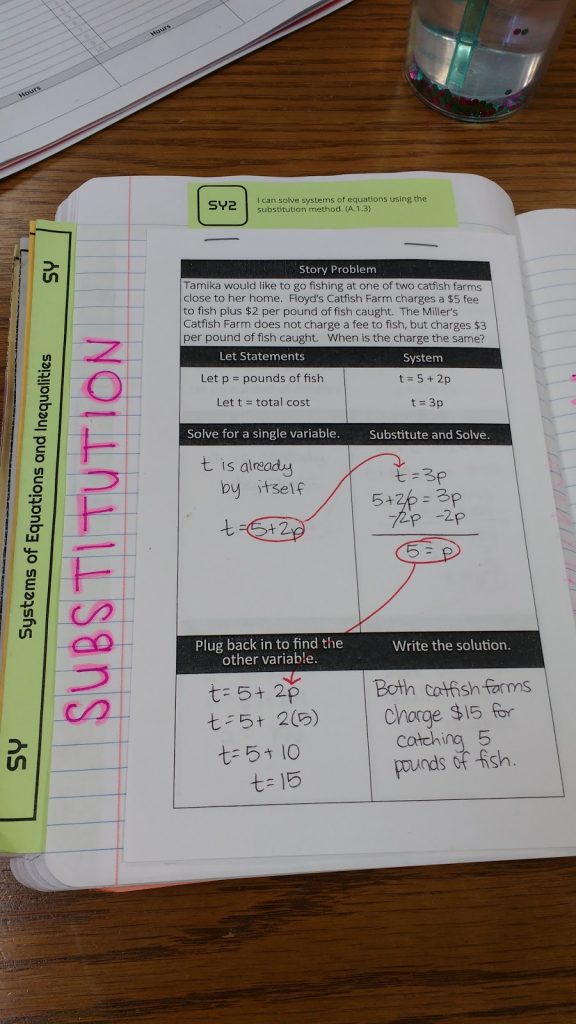 Hours
Hours
SY2
I can solve systems of equations using the
substitution method. (A.1.3)
SY
Systems of Equations and Inequalities
SY
SUBSTITUTION
Story Problem
Tamika would like to go fishing at one of two catfish farms
close to her home. Floyd's Catfish Farm charges a $5 fee
to fish plus $2 per pound of fish caught. The Miller's
Catfish Farm does not charge a fee to fish, but charges $3
per pound of fish caught. When is the charge the same?
Let Statements
System
Let p = pounds of fish
t = 5 + 2p
Let t = total cost
t = 3p
Solve for a single variable.
t is already
by itself
t = 5+2p
Substitute and Solve.
t = 3p
5+2p = 3p
-2p -2p
5 = p
Plug back in to find the
other variable.
t = 5 + 2p
t = 5 + 2(5)
t = 5 + 10
t = 15
Write the solution.
Both catfish farms
charge $15 for
catching 5
pounds of fish.